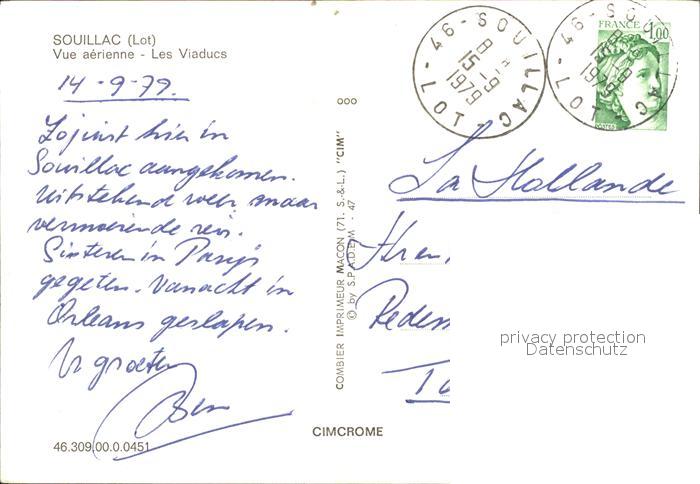 SOUILLAC (Lot)
Vue aérienne - Les Viaducs
14-9-79.
Zojuist hier in
Souillac aangekomen.
Uitstekend weer maar
vermoeiende reis.
Gisteren in Parijs
gegeten. Vanacht in
Orleans geslapen.
Vr groeten
46.309.00.0.0451
ooo
COMBIER IMPRIMEUR MACON (71. S.-&-L.) "CIM"
© by S.P.A.D.E.M - 47
CIMCROME
46 - SOUILLAC - LOT
8H
15-9
1979
46 - SOUILLAC - LOT
8H
15-9
1979
FRANCE 1,00
POSTES
La Hollande
privacy protection
Datenschutz